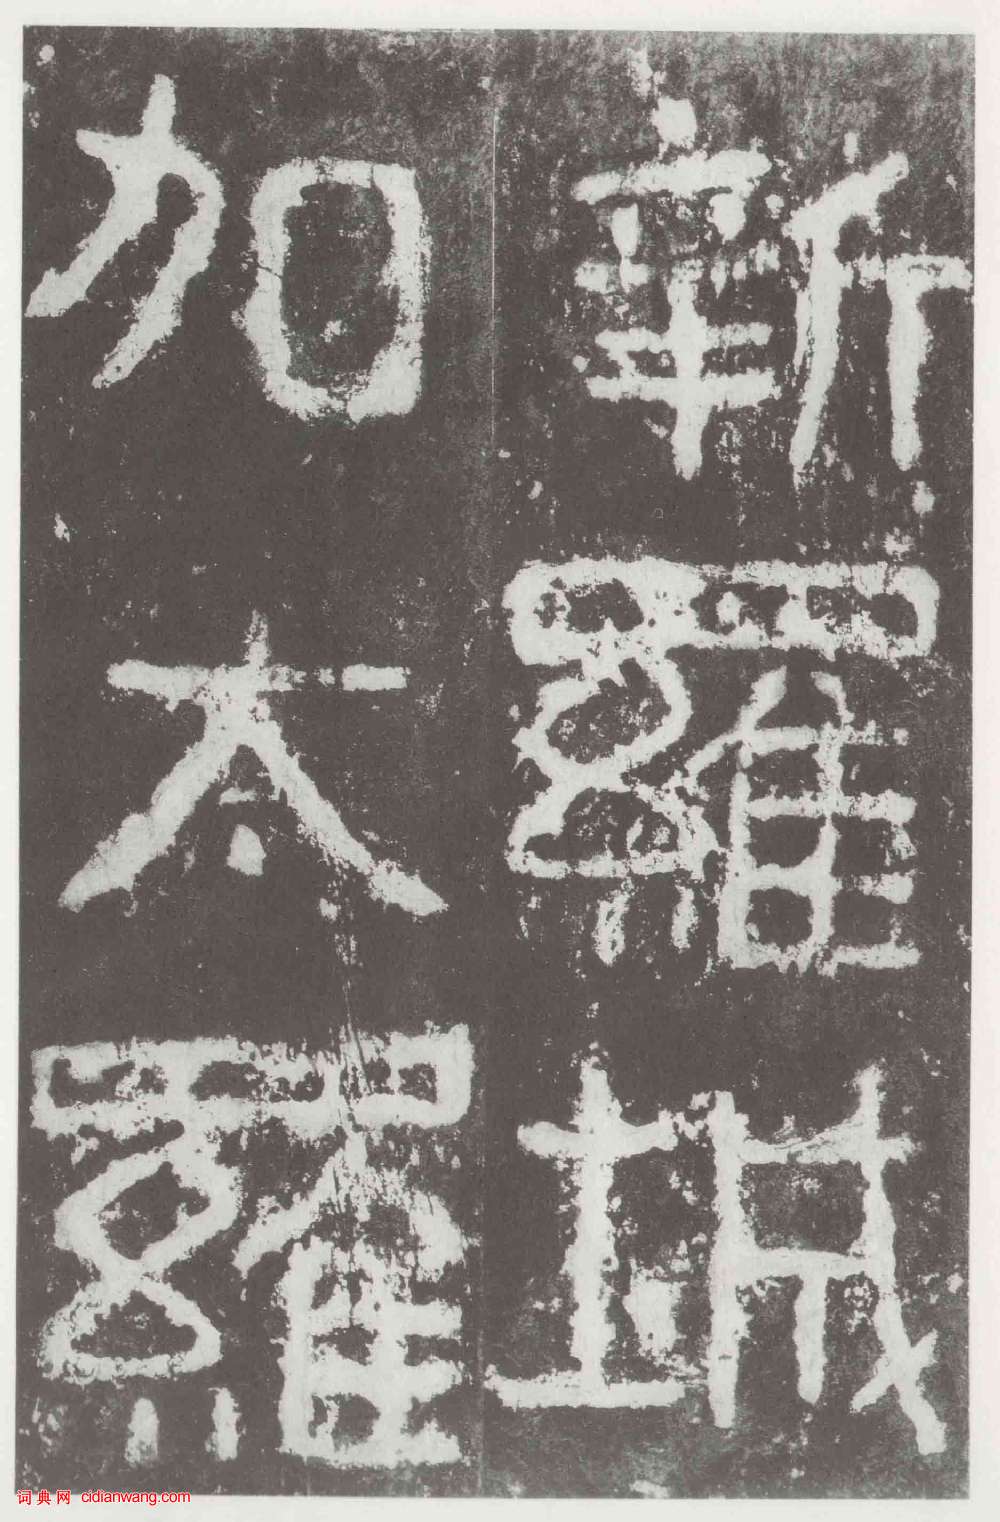 新羅城
加太羅
词典网 cidianwang.com